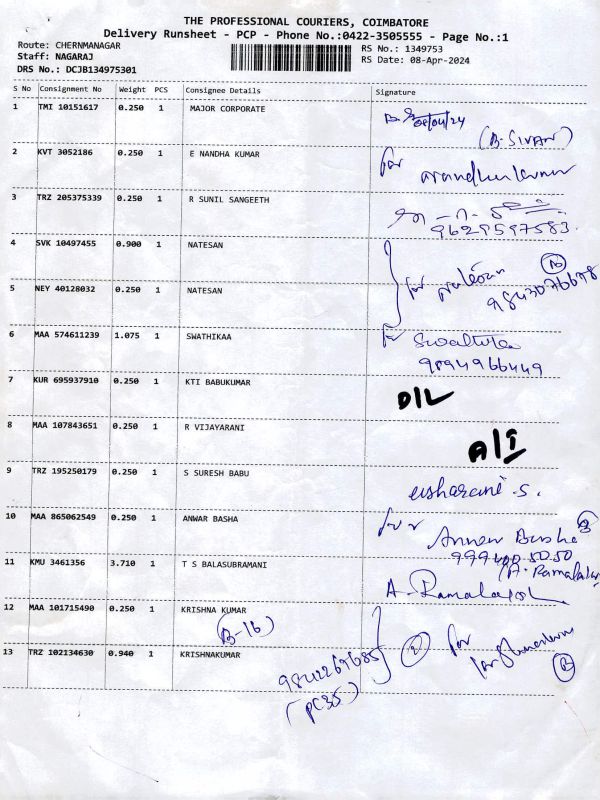 THE PROFESSIONAL COURIERS, COIMBATORE
Delivery Runsheet - PCP - Phone No.:0422-3505555 - Page No.:1
Route: CHERNMANAGAR
RS No.: 1349753
Staff: NAGARAJ
RS Date: 08-Apr-2024
DRS No.: DCJB134975301
S No Consignment No Weight PCS Consignee Details Signature
1 TMI 10151617 0.250 1 MAJOR CORPORATE
08/04/24
(B. SIVAN)
2 KVT 3052186 0.250 1 E NANDHA KUMAR for nandhakumar
3 TRZ 205375339 0.250 1 R SUNIL SANGEETH
9629597583
4 SVK 10497455 0.900 1 NATESAN
for
5 NEY 40128032 0.250 1 NATESAN
9843076698
6 MAA 574611239 1.075 1 SWATHIKAA for Swathika
9894966449
7 KUR 695937910 0.250 1 KTI BABUKUMAR D/L
8 MAA 107843651 0.250 1 R VIJAYARANI A/I
9 TRZ 195250179 0.250 1 S SURESH BABU usharani.S.
10 MAA 865062549 0.250 1 ANWAR BASHA for Anwar Basha
11 KMU 3461356 3.710 1 T S BALASUBRAMANI
12 MAA 101715490 0.250 1 KRISHNA KUMAR
(B-16)
13 TRZ 102134630 0.940 1 KRISHNAKUMAR
9842269685 (2) for
(PC35)